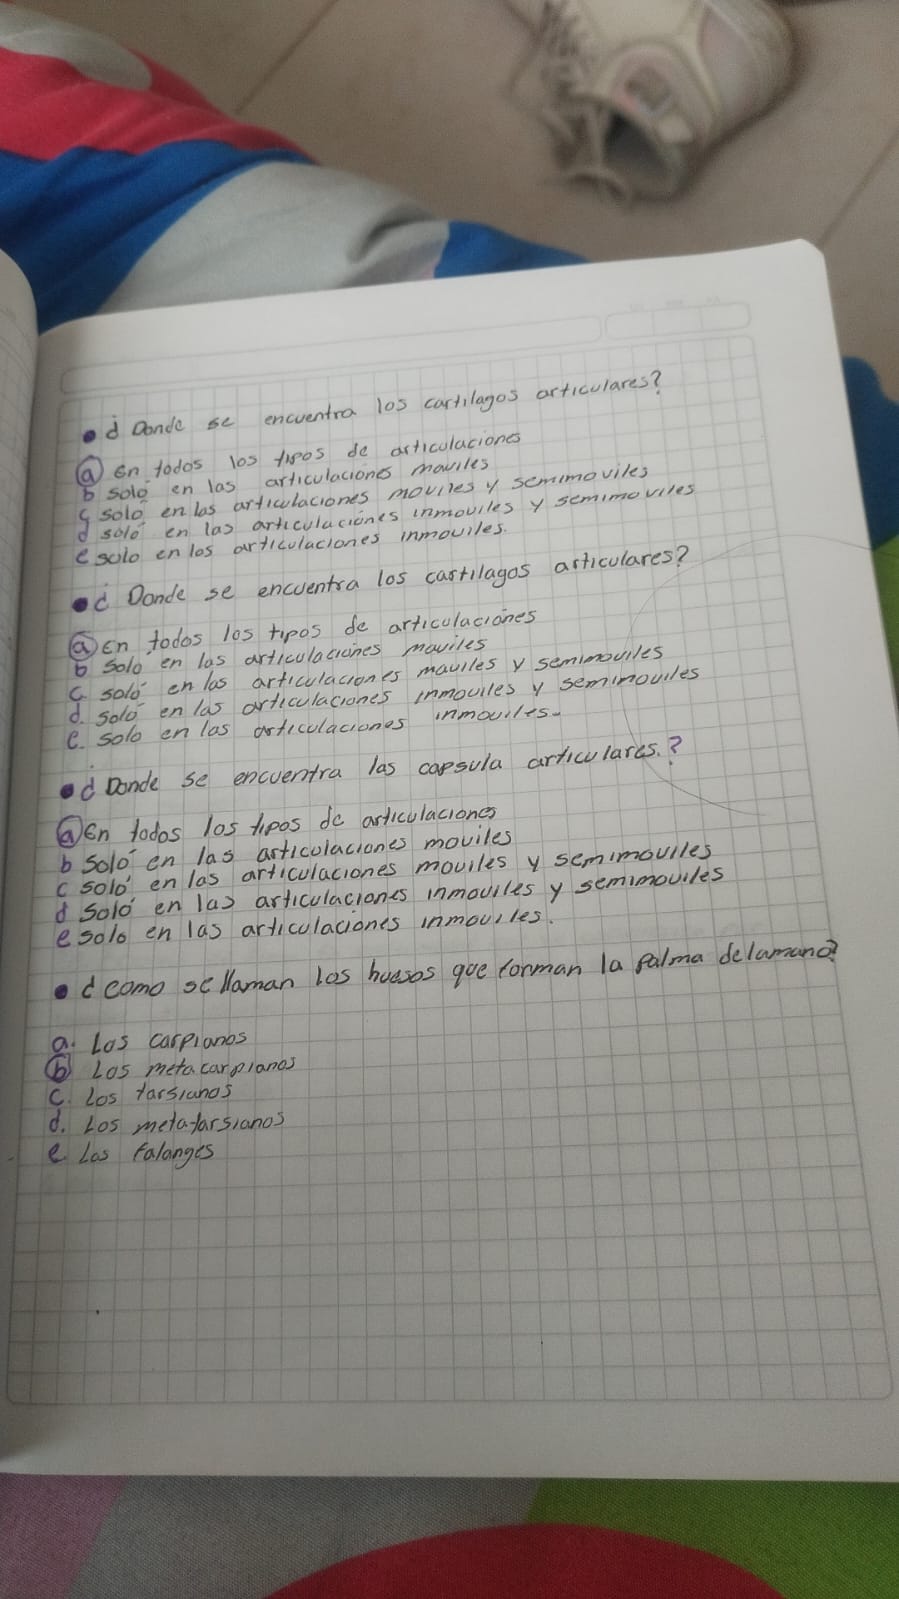 • ¿ Donde se encuentra los cartilagos articulares?
a en todos los tipos de articulaciones
b solo en las articulaciones moviles
c solo en las articulaciones moviles y semimoviles
d solo en las articulaciones inmoviles y semimoviles
e solo en las articulaciones inmoviles.
• ¿ Donde se encuentra los cartilagos articulares?
a En todos los tipos de articulaciones
b Solo en las articulaciones moviles
c solo en las articulaciones moviles y semimoviles
d. solo en las articulaciones inmoviles y semimoviles
e. solo en las articulaciones inmoviles.
• ¿ Donde se encuentra las capsula articulares.?
a En todos los tipos de articulaciones
b Solo en las articulaciones moviles
c solo en las articulaciones moviles y semimoviles
d Solo en las articulaciones inmoviles y semimoviles
e solo en las articulaciones inmoviles.
• ¿ como se llaman los huesos que forman la palma de la mano?
a. Los carpianos
b Los metacarpianos
c. Los tarsianos
d. Los metatarsianos
e. Las falanges